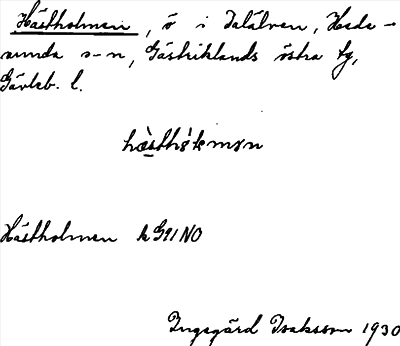 Hästholmen, ö i Dalälven, Hede-
sunda s-n, Gästriklands östra tg,
Gävleb. l.
Hästholmen k G91NO
Ingegärd Isaksson 1930